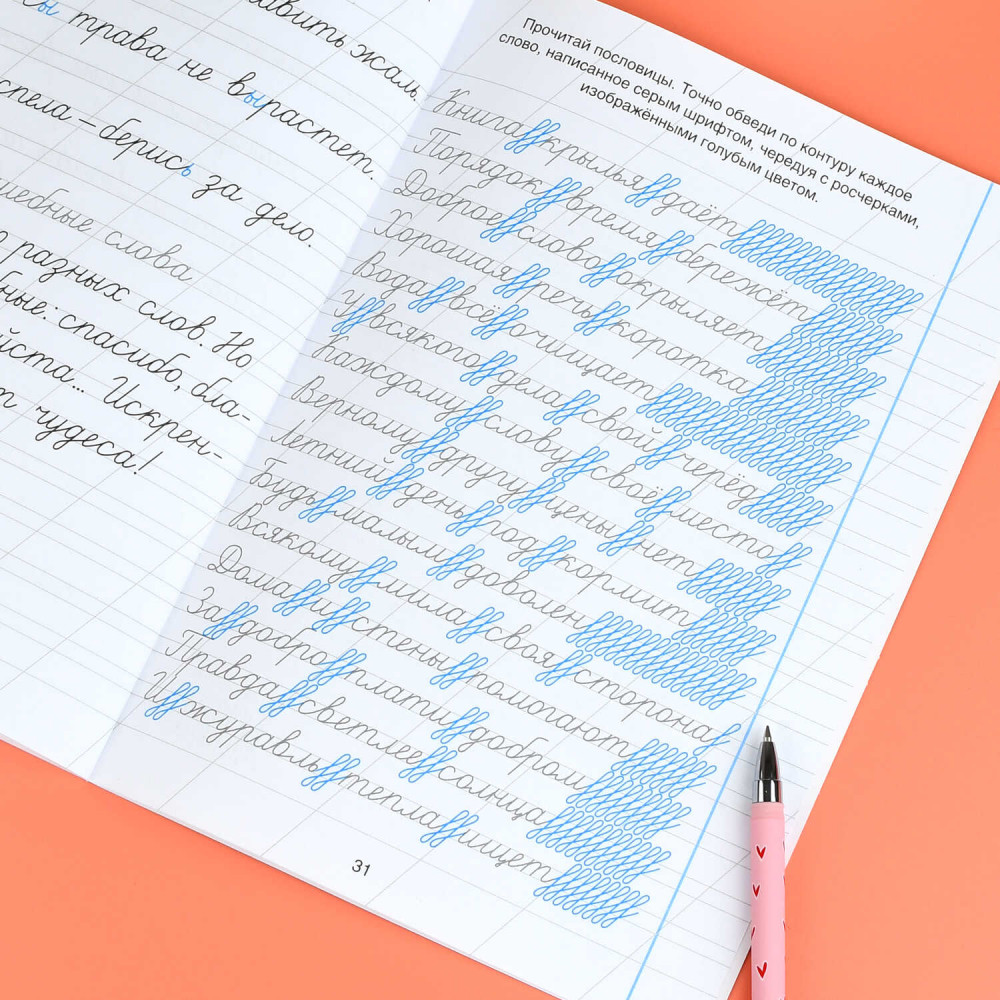 авить жаль.
ы трава не вырастет.
спела – берись за дело.
шебные слова
разных слов. Но
ные: спасибо, бла-
йста... Искрен-
т чудеса!
Прочитай пословицы. Точно обведи по контуру каждое
слово, написанное серым шрифтом, чередуя с росчерками,
изображёнными голубым цветом.
Книга крылья даёт
Порядок время бережёт
Доброе слово окрыляет
Хорошая речь коротка
Вода всё очищает
У всякого дела свой черёд
Каждому слову своё место
Верному другу цены нет
Летний день год кормит
Будь малым доволен
Всякому мила своя сторона
Дома и стены помогают
За добро плати добром
Правда светлее солнца
И журавль тепла ищет
31